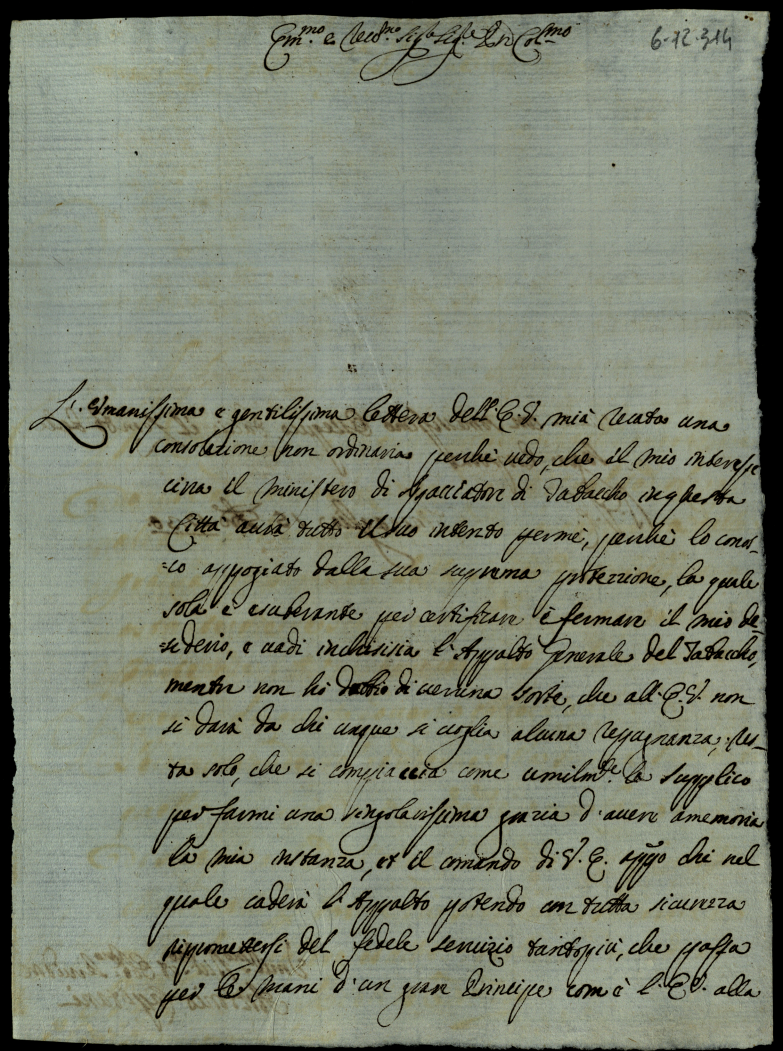 Em.mo e Reu.mo Sig.re Sig.re Pron Col.mo
6-12-314
L'umanissima e gentilissima lettera dell'E.V. mià recato una
consolazione non ordinaria perche uedo, che il mio interesse
circa il ministero di spacciatore di Tabaccho inquesta
Città aurà tutto il suo intento permè, perche lo conos=
=co appogiato dalla sua suprema protezzione, la quale
sola è esuberante per certificare è fermare il mio de=
=siderio, e uadi inchisisia l'Appalto Generale del Tabaccho,
mentre non hò dubio di ueruna sorte, che all'E.V. non
si darà da chi unque si uoglia alcuna repugnanza; Res=
ta solo, che si compiaccia come umilm.te la supplico
per farmi una singolarissima grazia d'auere amemoria
la mia instanza, et il comando di V.E. app.o chi nel
quale caderà l'Appalto potendo con tutta sicurezza
ripromettersi del fedele seruizio tantopiù, che passa
per le mani d'un gran Principe com'è l'E.V. alla